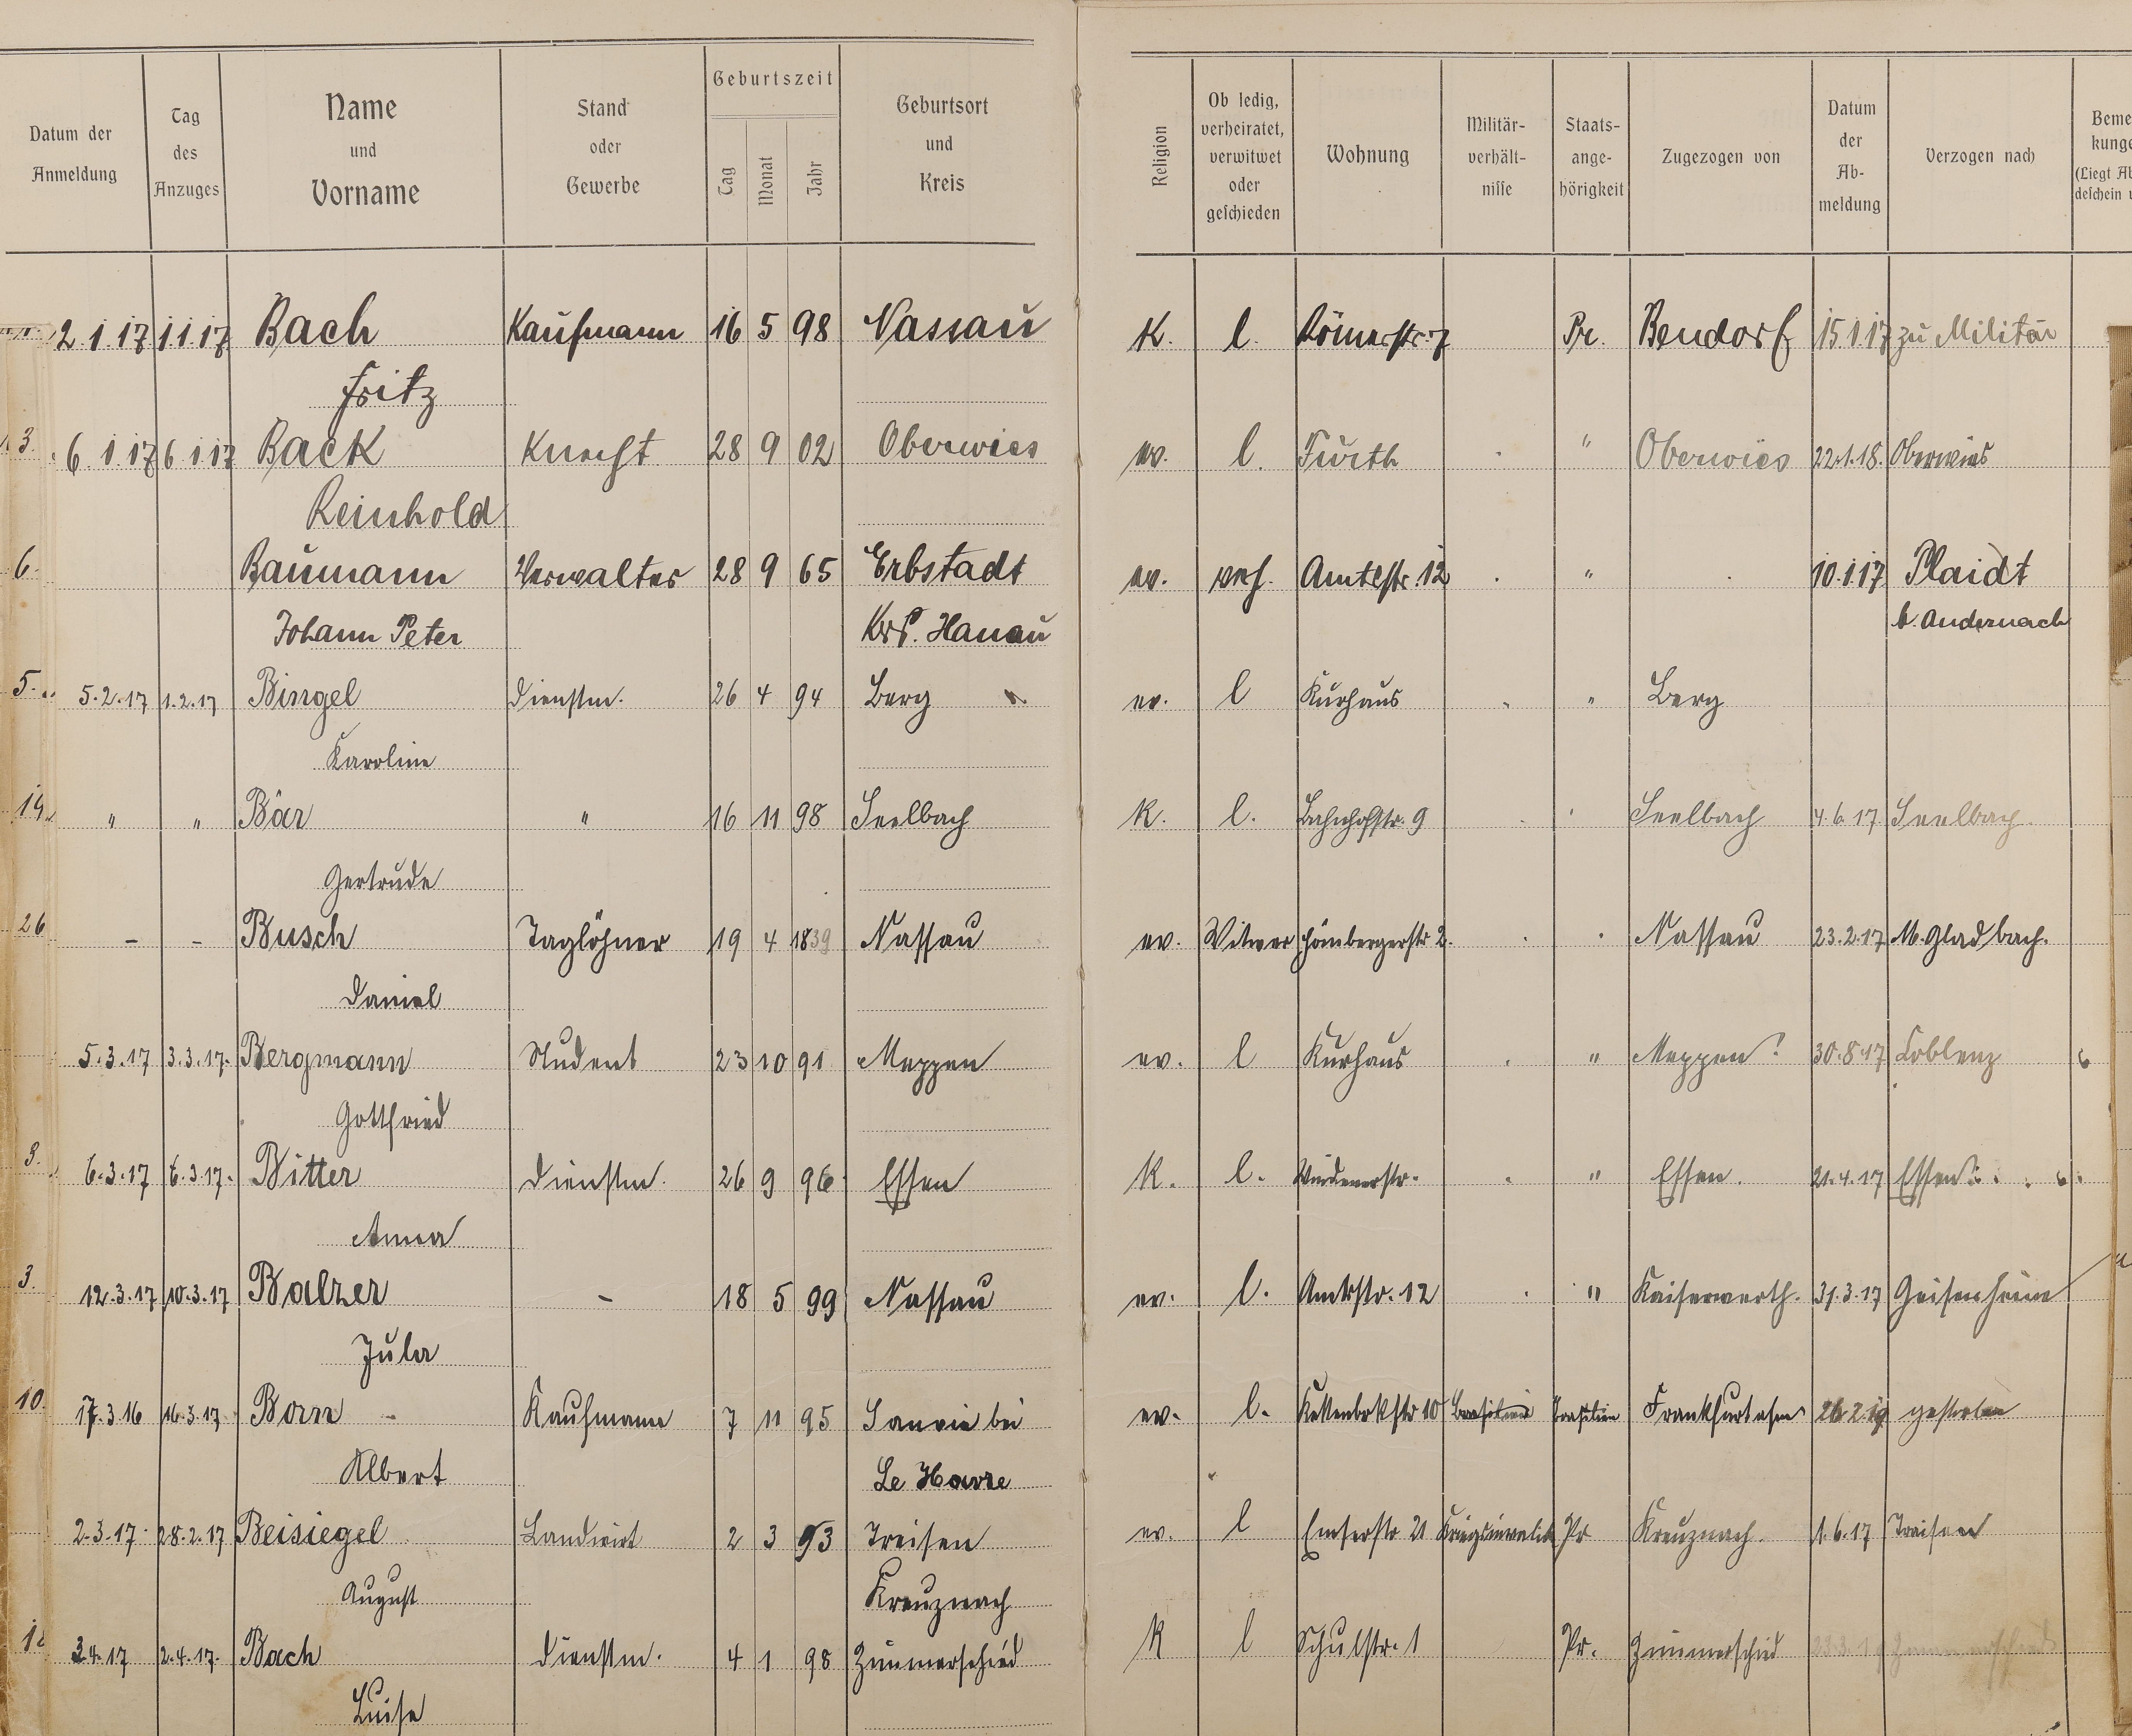 Datum der Anmeldung | Tag des Anzuges | Name und Vorname | Stand oder Gewerbe | Geburtszeit Tag Monat Jahr | Geburtsort und Kreis | Religion | Ob ledig, verheiratet, verwitwet oder geschieden | Wohnung | Militär-verhält-nisse | Staats-ange-hörigkeit | Zugezogen von | Datum der Ab-meldung | Verzogen nach | Beme kunge (Liegt Ab deschein u
2 1 17 | 1 1 17 | Bach | Kaufmann | 16 | 5 | 98 | Nassau | K. | l. | Römerstr. 7 | Pr. | Bendorf | 15 1 17 | zu Militär
Fritz
3. 6. 1. 17 | 6 1 17 | Back | Knecht | 28 | 9 | 02 | Oberwies | ev. | l. | Fürth | " | Oberwies | 22.1.18. | Oberwies
Reinhold
6. | Baumann | Verwalter | 28 | 9 | 65 | Erbstadt | ev. | verh. | Amtsstr. 12 | " | 10.1.17 | Plaidt
Johann Peter | Krs. Hanau | b. Andernach
5. 5.2.17 | 1.2.17 | Bingel | Dienstm. | 26 | 4 | 94 | Berg | ev. | l | Kurhaus | " | Berg
Karoline
14. " | " | Bär | " | 16 | 11 | 98 | Seelbach | K. | l. | Bahnhofstr. 9 | Seelbach | 4.6.17 | Seelbach.
Gertrude
26 – | – | Busch | Taglöhner | 19 | 4 | 1839 | Nassau | ev. | Witwer | Hömbergerstr 2. | Nassau | 23.2.17 | M. Gladbach.
Daniel
5.3.17 | 3.3.17. | Bergmann | Student | 23 | 10 | 91 | Meppen | ev. | l | Kurhaus | " | Meppen? | 30.8.17 | Coblenz
Gottfried
3. 6.3.17 | 6.3.17. | Bitter | Dienstm. | 26 | 9 | 96 | Essen | K. | l. | Windenerstr. | " | Essen. | 21.4.17 | Essen
Anna
3. 12.3.17 | 10.3.17 | Balzer | – | 18 | 5 | 99 | Nassau | ev. | l. | Amtstr. 12 | " | Kaiserwerth. | 31.3.17 | Geisenheim
Jula
10. 17.3.16 | 16.3.17 | Born | Kaufmann | 7 | 11 | 95 | Sanvic bei | ev. | l. | Kettenbrkstr 10 | Brasilien | Brasilien | Frankfurt a/m | 26 2 19 | gestorben
Albert | Le Havre
2.3.17. | 28.2.17 | Beisiegel | Landwirt | 2 | 3 | 93 | Treisen | ev. | l | Emserstr 21 | Kriegsinvalide | Pr | Kreuznach. | 1.6.17 | Traisen
August | Kreuznach
3 4.17 | 2.4.17. | Bach | Dienstm. | 4 | 1 | 98 | Zimmerschied | K | l | Schulstr. 1 | Pr. | Zimmerschied | Zimmerschied
Luise